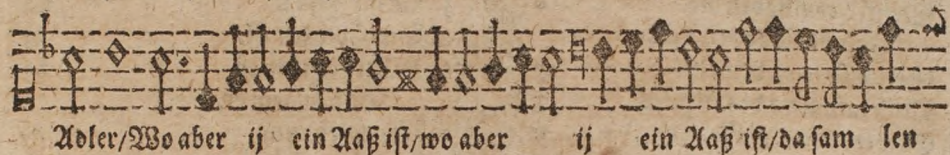 Adler/Wo aber ij ein Aaß iſt/wo aber ij ein Aaß iſt/da ſam len